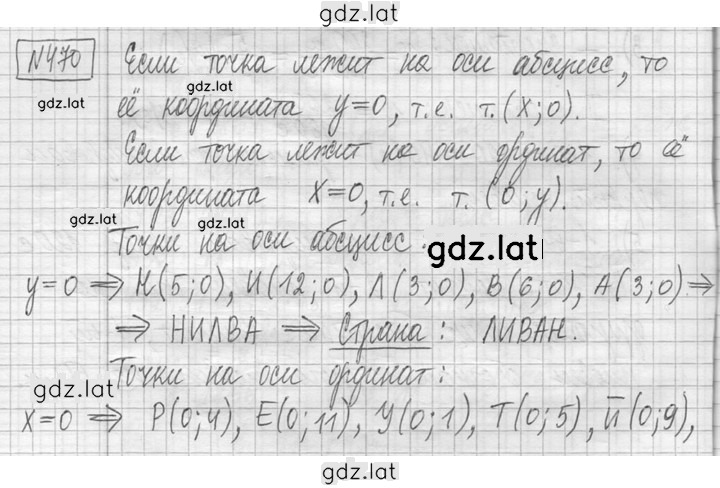 gdz.lat
N470 Если точка лежит на оси абсцисс, то
gdz.lat
gdz.lat
её координата y=0, т.е. т.(x;0).
Если точка лежит на оси ординат, то её
координата x=0, т.е. т. (0;y).
gdz.lat
gdz.lat
Точки на оси абсцисс:
gdz.lat
y=0 ⇒ Н(5;0), И(12;0), Л(3;0), В(6;0), А(3;0) ⇒
⇒ НИЛВА ⇒ Страна: ЛИВАН.
Точки на оси ординат:
gdz.lat
x=0 ⇒ Р(0;4), Е(0;11), У(0;1), Т(0;5), Й(0;9),
gdz.lat